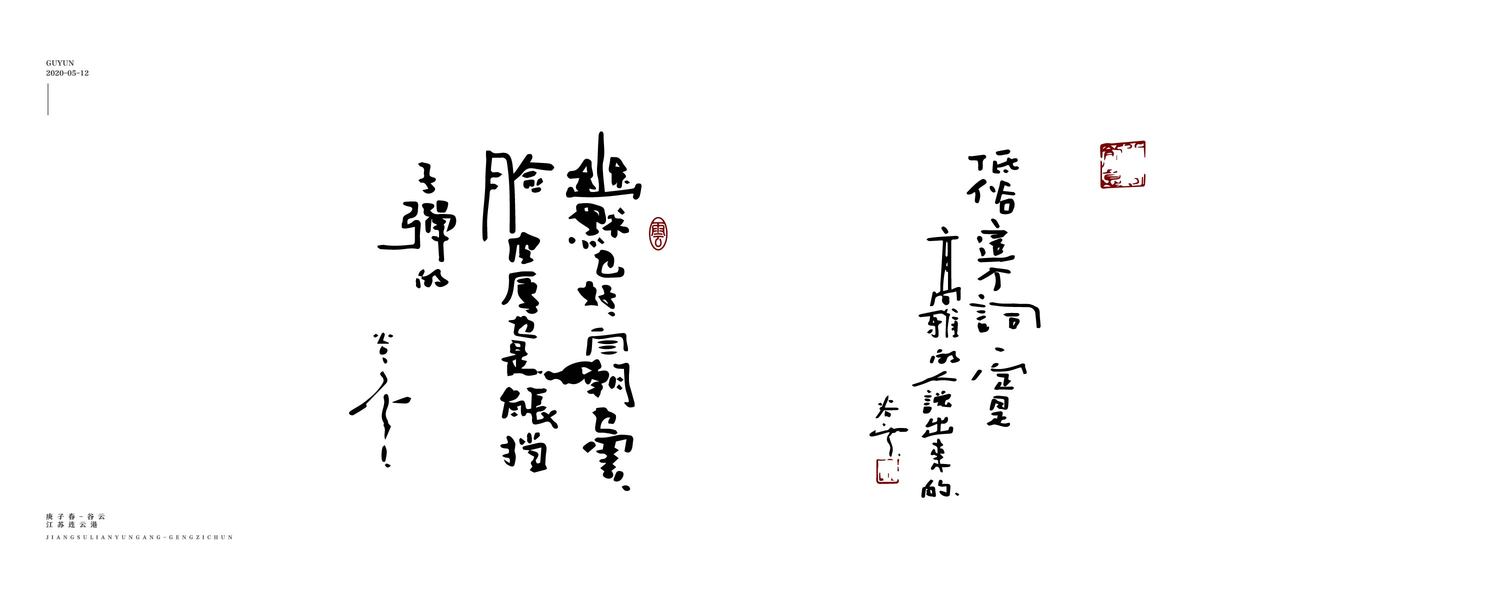 GUYUN
2020-05-12
低俗這个詞一定是
高雅的人説出来的
谷雲
雲
幽默也好
自嘲也罢
臉皮厚也是能挡
子彈的
谷雲
庚子春-谷云
江苏连云港
JIANGSULIANYUNGANG-GENGZICHUN